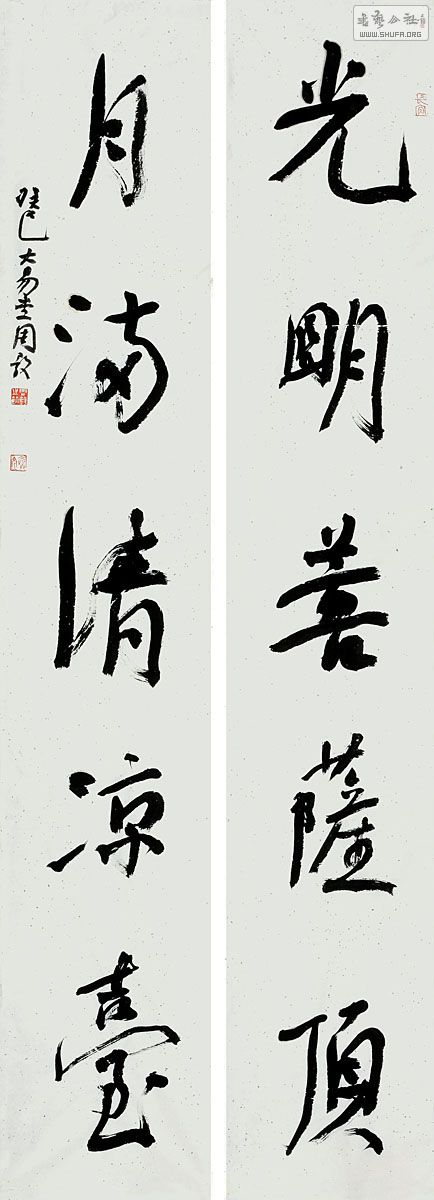 書藝公社
WWW.SHUFA.ORG
光明菩薩頂
月滿清凉臺
大易堂周